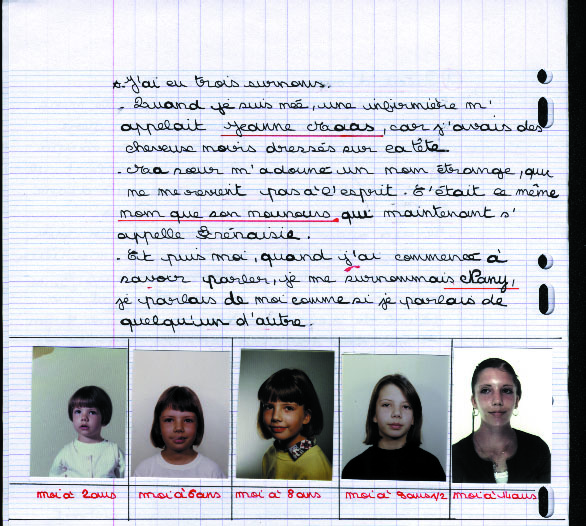 J'ai eu trois surnoms.
- Quand je suis née, une infirmière m'
appelait Jeanne Maas, car j'avais des
cheveux noirs dressés sur la tête
- Ma sœur m'a donné un nom étrange, qui
ne me revient pas à l'esprit. C'était le même
nom que son nounours, qui maintenant s'
appelle
- Et puis moi, quand j'ai commencé à
savoir parler, je me surnommais Nany,
je parlais de moi comme si je parlais de
quelqu'un d'autre.
moi à 2 ans moi à 6 ans moi à 8 ans moi à 9 ans 1/2 moi à 11 ans